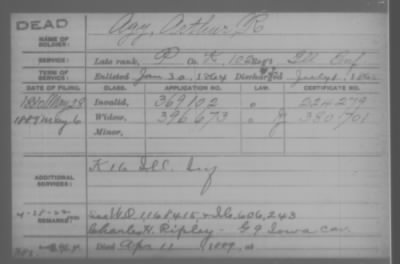 DEAD
NAME OF SOLDIER: Agy, Arthur R
SERVICE: Late rank, P Co. K, 102 Reg't Ill Inf
TERM OF SERVICE: Enlisted Jan 30, 1864 Discharged July 1, 1865
DATE OF FILING. CLASS. APPLICATION NO. LAW. CERTIFICATE NO.
1880 May 28 Invalid, 369102 " 224279
1889 May 6 Widow, 396673 " 380701
Minor,
ADDITIONAL SERVICES: K 16 Ill. Inf
REMARKS: W.O. 1168415 Ib. 606,243
Charles H. Ripley - G 9 Iowa Cav.
Died Apr 11 1889, at